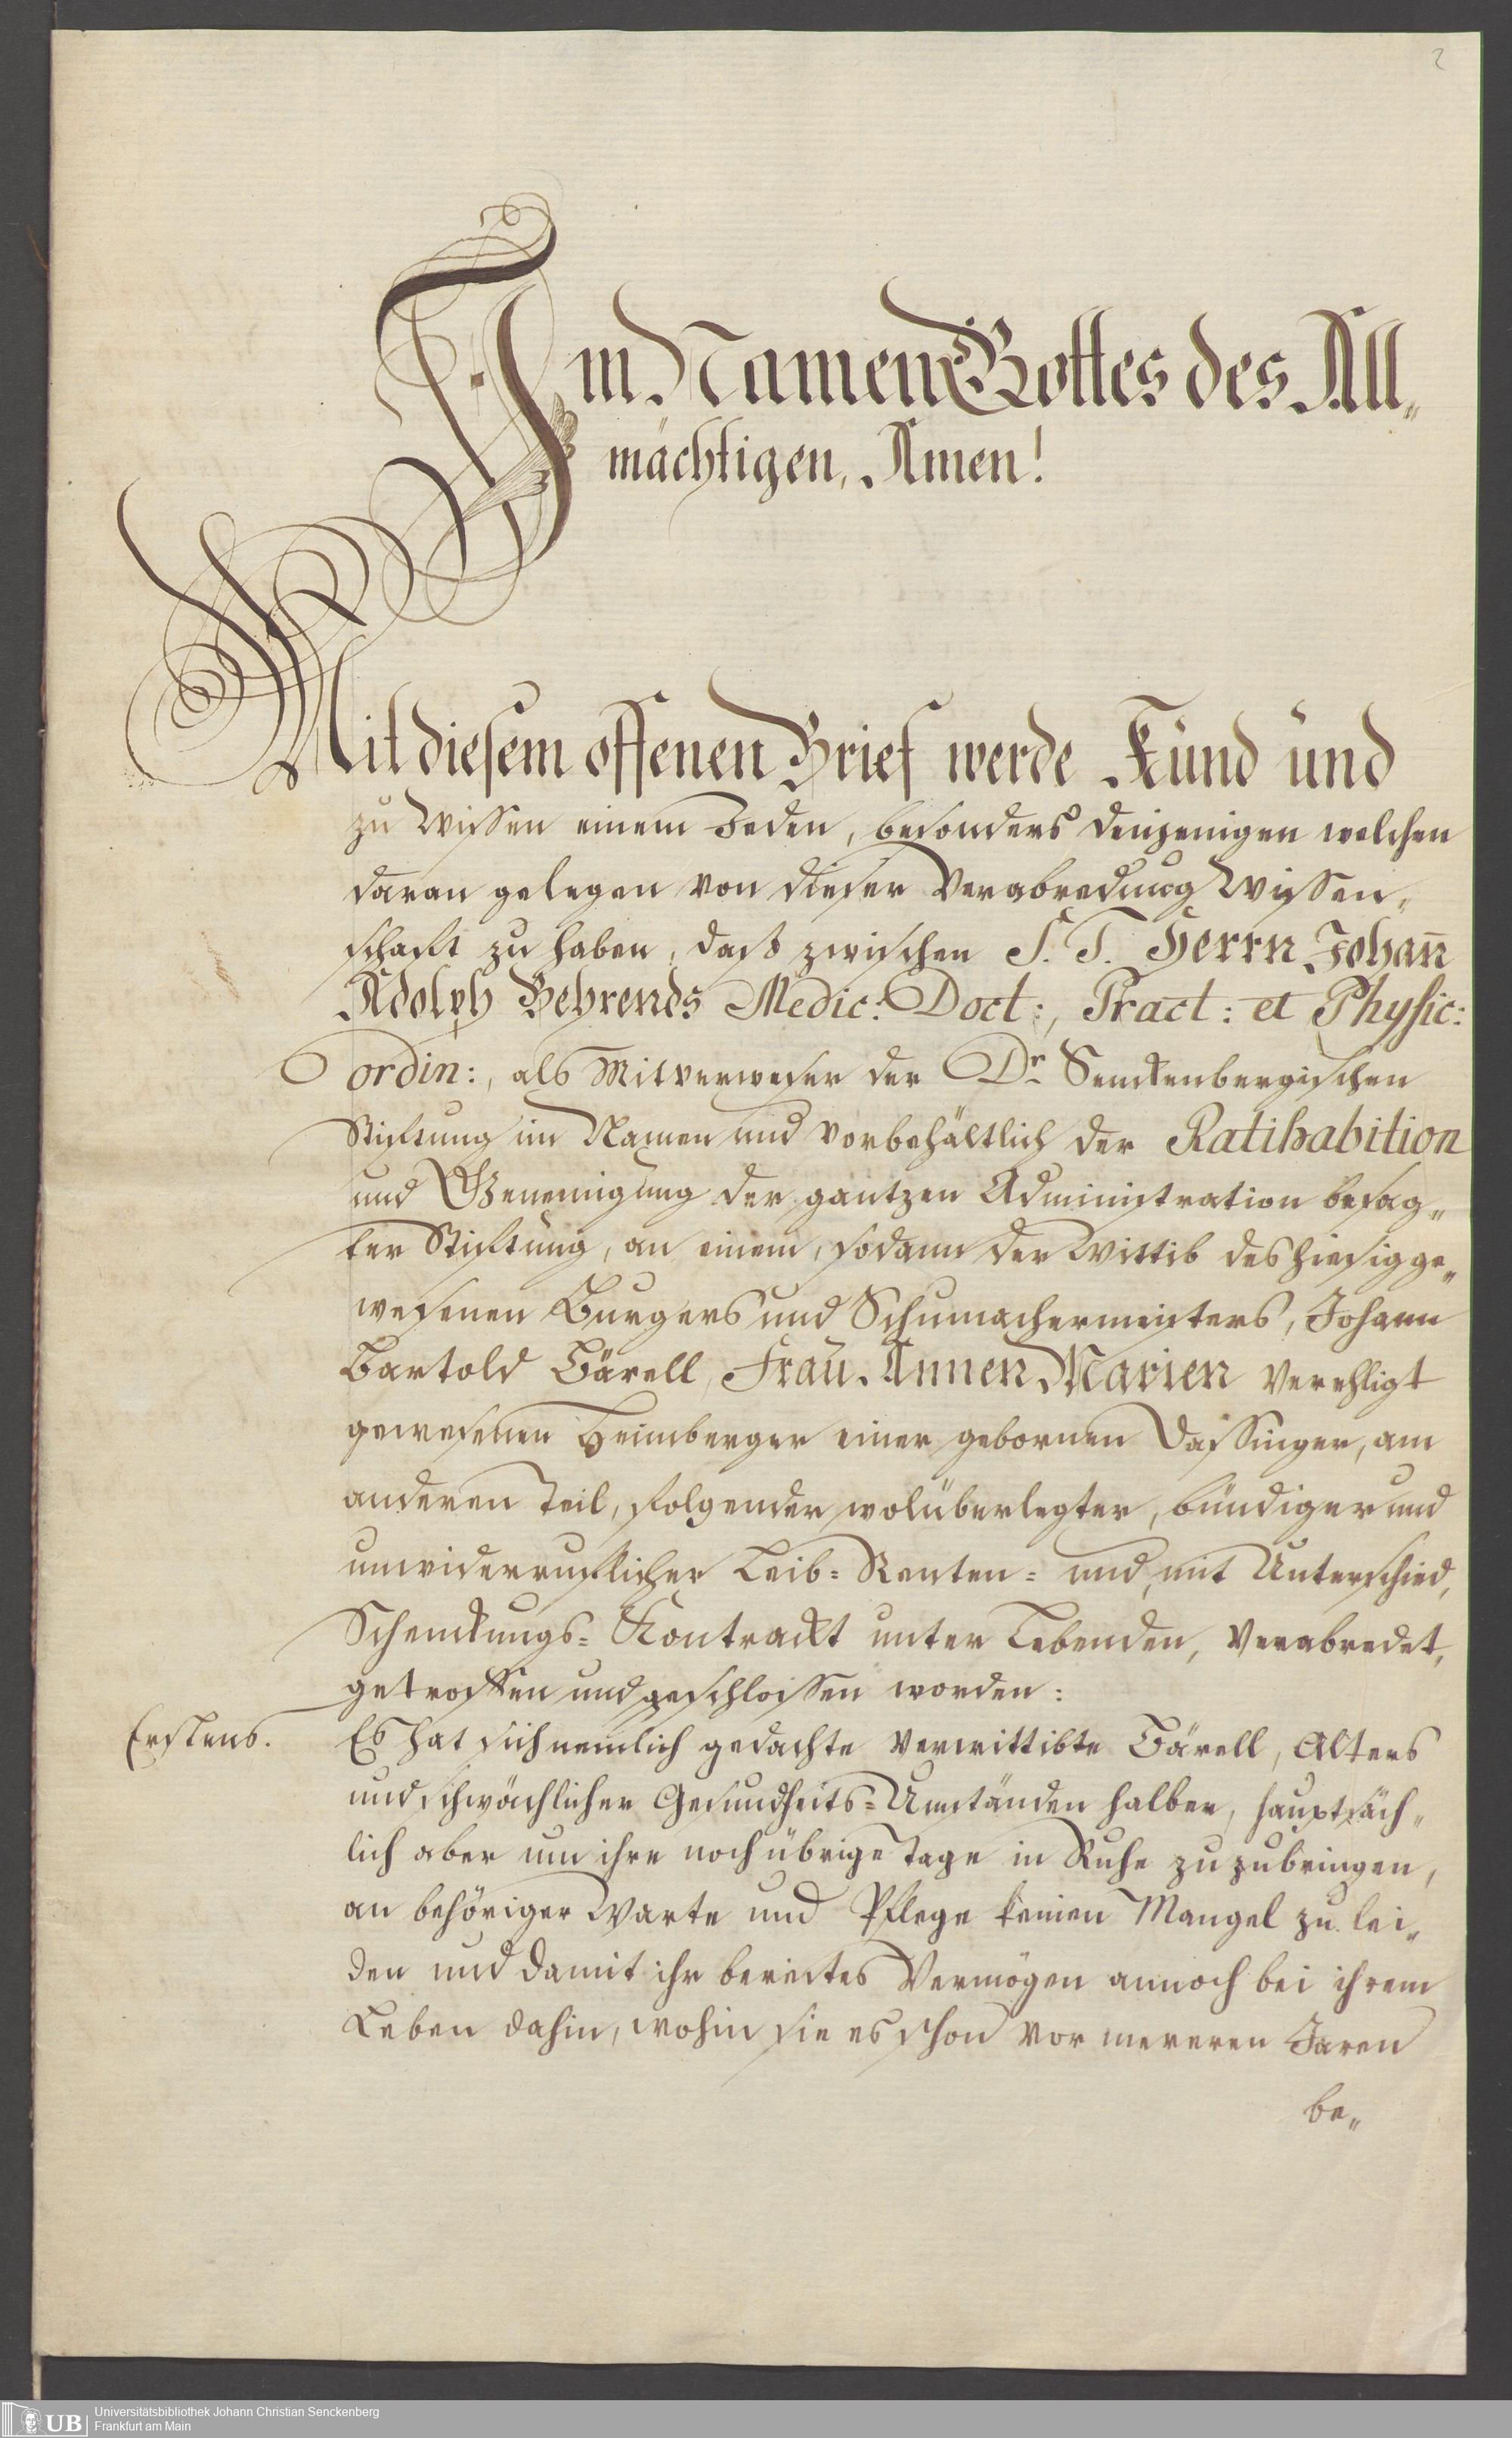 2
Im Namen Gottes des All„
mächtigen, Amen!
Mit diesem offenen Brief werde Kund und
zu Wissen einem Jeden, besonders denjenigen welchen
daran gelegen von dieser Verabredung Wissen„
schaft zu haben, daß zwischen S. T. Herrn Johan̅
Adolph Behrends Medic: Doct:, Pract: et Physic:
ordin:, als Mitverweser der Dr. Senckenbergischen
Stiftung im Namen und vorbehältlich der Ratihabition
und Genemigung der gantzen Administration besag„
ter Stiftung, an einem, sodann der Wittib des hiesig ge„
wesenen Burgers und Schumachermeisters, Johann
Bartold Bärell, Frau Annen Marien verehligt
gewesenen Heimberger einer gebornen Dassinger, am
anderen Teil, folgender wolüberlegter, bündiger und
unwiderruflicher Leib= Renten= und, mit Unterschied,
Schenckungs= Kontrackt unter Lebenden, verabredet,
getroffen und geschlossen worden:
Erstens. Es hat sich nemlich gedachte verwittibte Bärell, Alters
und schwächlicher Gesundheits=Umständen halber, hauptsäch„
lich aber um ihre noch übrige Tage in Ruhe zuzubringen,
an behöriger Warte und Pflege keinen Mangel zu lei„
den und damit ihr bereites Vermögen annoch bei ihrem
Leben dahin, wohin sie es schon vor mereren Jaren
be„
UB
Universitätsbibliothek Johann Christian Senckenberg
Frankfurt am Main